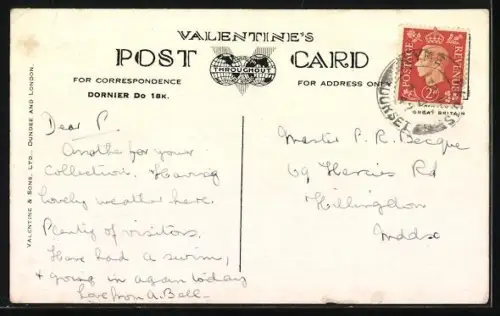 VALENTINE'S
POST CARD
THROUGHOUT
FOR CORRESPONDENCE
FOR ADDRESS ON
DORNIER DO 18K.
POSTAGE REVENUE
2D
DORSET
GREAT BRITAIN
VALENTINE & SONS, LTD., DUNDEE AND LONDON.
Dear P.
Another for your
collection. Having
lovely weather here.
Plenty of visitors.
Have had a swim,
& going in again today
Love from A. Bell
Master P. R. Becque
69 Hercies Rd
Hillingdon
Mddsx